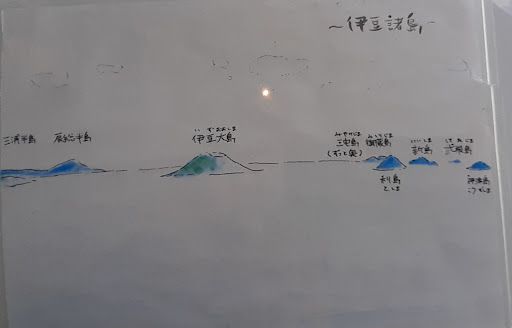 ～伊豆諸島～
三浦半島
房総半島
いずおおしま
伊豆大島
みやけじま
三宅島
(ずっと奥)
みくらじま
御蔵島
利島
としま
にいじま
新島
しきねじま
式根島
神津島
こうづしま